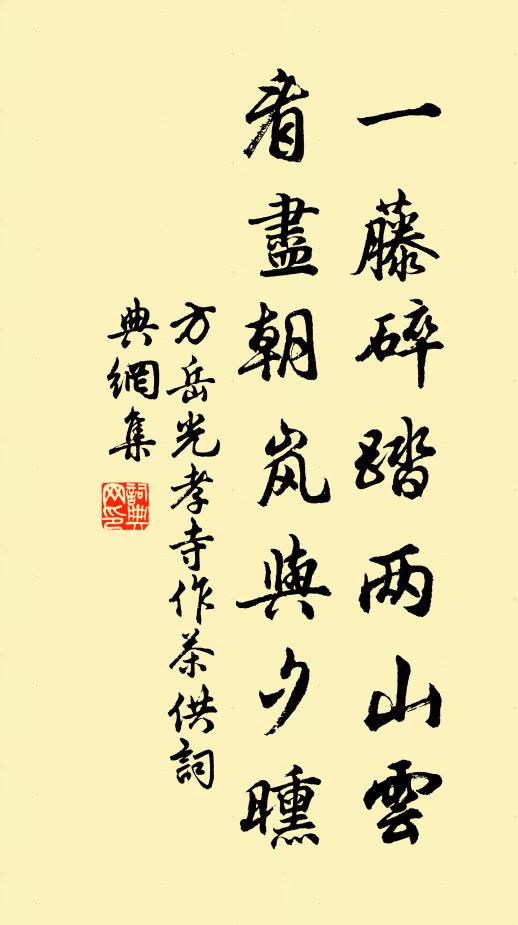 一藤碎踏两山雲
看盡朝岚與夕曛
方岳光孝寺作茶供詞
典網集
詞典网印